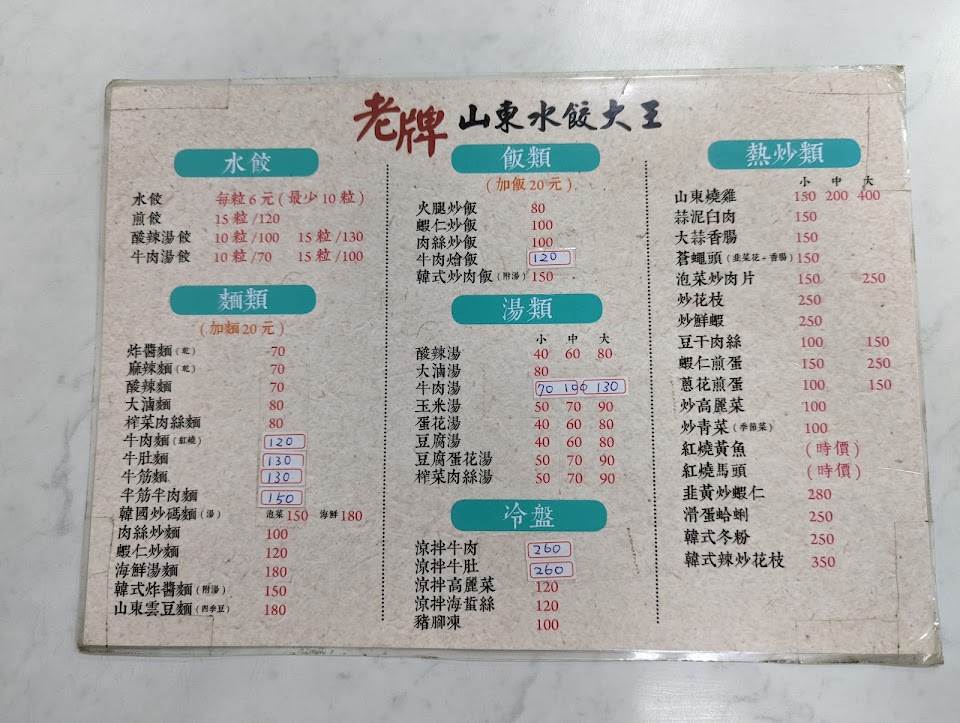 老牌 山東水餃大王
水餃
水餃 每粒6元(最少10粒)
煎餃 15粒/120
酸辣湯餃 10粒/100 15粒/130
牛肉湯餃 10粒/70 15粒/100
麵類
(加麵20元)
炸醬麵(乾) 70
麻辣麵(乾) 70
酸辣麵 70
大滷麵 80
榨菜肉絲麵 80
牛肉麵(紅燒) 120
牛肚麵 130
牛筋麵 130
半筋半肉麵 150
韓國炒碼麵(湯) 泡菜150 海鮮180
肉絲炒麵 100
蝦仁炒麵 120
海鮮湯麵 180
韓式炸醬麵(附湯) 150
山東雲豆麵(四季豆) 180
飯類
(加飯20元)
火腿炒飯 80
蝦仁炒飯 100
肉絲炒飯 100
牛肉燴飯 120
韓式炒肉飯(附湯) 150
湯類
小 中 大
酸辣湯 40 60 80
大滷湯 80
牛肉湯 70 100 130
玉米湯 50 70 90
蛋花湯 40 60 80
豆腐湯 40 60 80
豆腐蛋花湯 50 70 90
榨菜肉絲湯 50 70 90
冷盤
涼拌牛肉 260
涼拌牛肚 260
涼拌高麗菜 120
涼拌海蜇絲 120
豬腳凍 100
熱炒類
小 中 大
山東燒雞 150 200 400
蒜泥白肉 150
大蒜香腸 150
蒼蠅頭(韭菜花+香腸) 150
泡菜炒肉片 150 250
炒花枝 250
炒鮮蝦 250
豆干肉絲 100 150
蝦仁煎蛋 150 250
蔥花煎蛋 100 150
炒高麗菜 100
炒青菜(季節菜) 100
紅燒黃魚 (時價)
紅燒馬頭 (時價)
韭黃炒蝦仁 280
滑蛋蛤蜊 250
韓式冬粉 250
韓式辣炒花枝 350